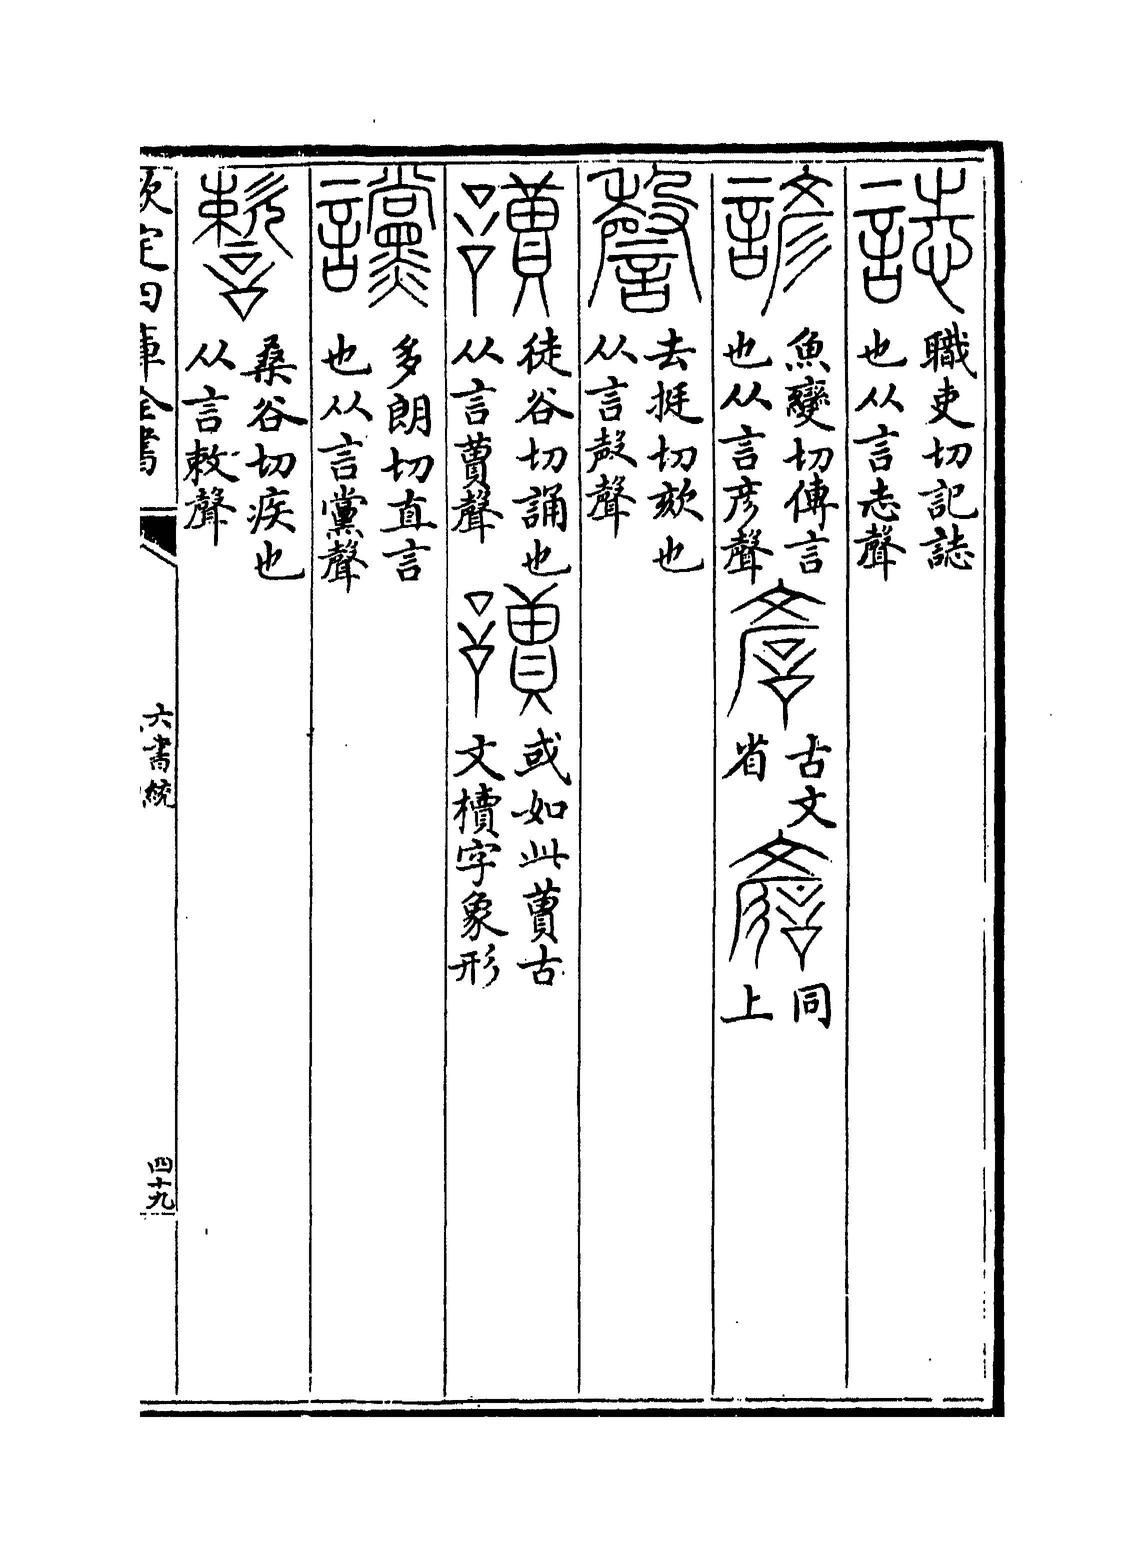 誌 職吏切記誌
也从言志聲
諺 魚變切傳言
也从言彥聲
古文
省
同
上
謦 去挺切欬也
从言殸聲
讀 徒谷切誦也
从言𧶠聲
或如此𧶠古
文櫝字象形
讜 多朗切直言
也从言黨聲
桑谷切疾也
从言敕聲
欽定四庫全書
六書統
四十九